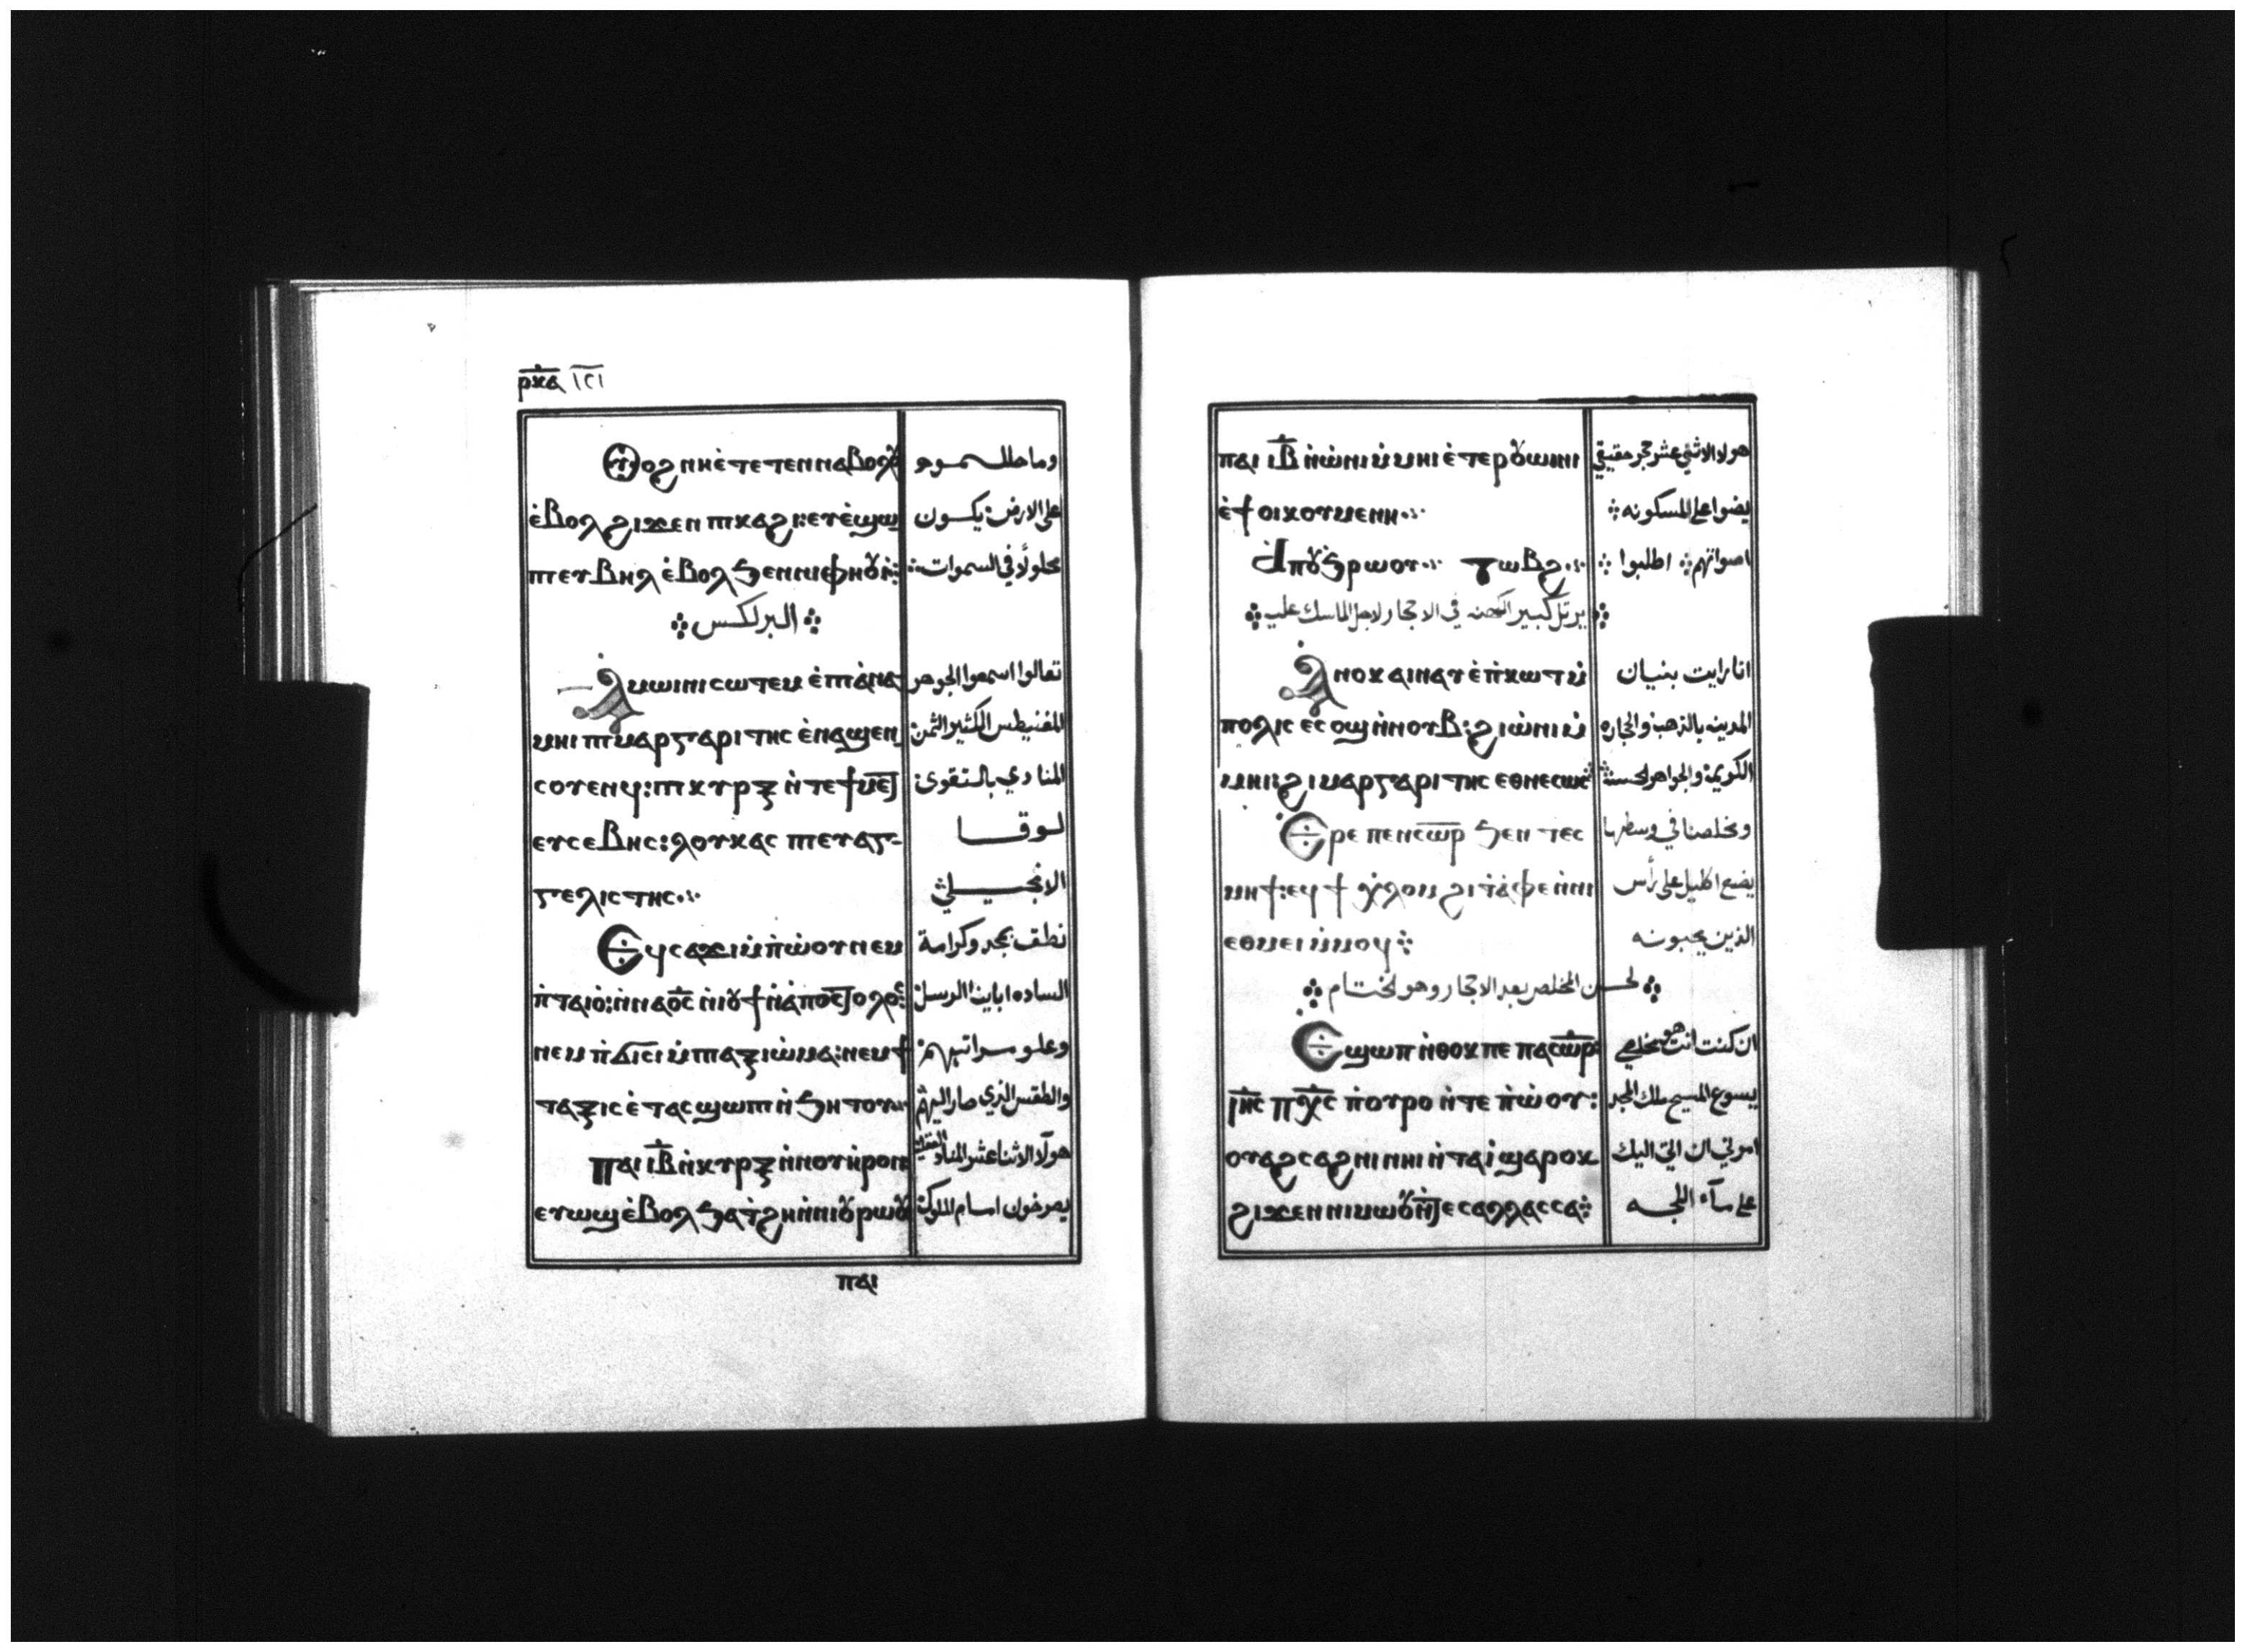 ⲣⲕⲁ ١٢١
Ⲟⲩⲟϩ ⲛⲏⲉ̀ⲧⲉⲧⲉⲛⲛⲁⲃⲟⲗⲟⲩ وما حللـتـمـوه
ⲉ̀ⲃⲟⲗϩⲓϫⲉⲛ ⲡⲕⲁϩⲓ:ⲉⲩⲉ̀ϣⲱ على الارض: يكون
ⲡⲉⲩⲃⲏⲗ ⲉ̀ⲃⲟⲗϧⲉⲛⲛⲓⲫⲏⲟⲩⲓ̀: محلولًا في السموات:
البرلكس
Ⲁ̀ⲙⲱⲓⲛⲓⲥⲱⲧⲉⲙ ⲉ̀ⲡⲁ̀ⲛⲁ تعالوا اسمعوا الجوهر
ⲙⲏⲓ ⲡⲙⲁⲣⲅⲁⲣⲓⲧⲏⲥ ⲉ̀ⲛⲁϣⲉⲛ المغنيطس الكثير الثمن:
ⲥⲟⲩⲉⲛϥ:ⲡⲕⲩⲣⲝ ⲛ̀ⲧⲉϯⲙⲉⲧ المنادي بالتقوى:
ⲉⲩⲥⲉⲃⲏⲥ:ⲗⲟⲩⲕⲁⲥ ⲡⲉⲩⲁⲅ- لـوقـا
ⲅⲉⲗⲓⲥⲧⲏⲥ الانجيـلي
Ⲉϥⲥⲁϫⲓⲙ̀ⲡ̀ⲱ̀ⲟⲩⲛⲉⲙ نطق بمجد وكرامة
ⲡ̀ⲧⲁⲓⲟ̀:ⲛ̀ⲛⲁⲟ̅ⲥ̅ ⲛ̀ⲓⲟϯⲛ̀ⲁ̀ⲡⲟⲥⲧⲟⲗⲟⲥ: الساده ابآينا الرسل:
ⲛⲉⲙ ⲡ̀ϭⲓⲥⲓ ⲙ̀ⲡⲁⲝⲓⲱ̀ⲙⲁ:ⲛⲉⲙϯ وعلـو مـراتبهم:
ⲧⲁⲝⲓⲥ ⲉ̀ⲧⲁⲥϣⲱⲡⲓ ⲛ̀ϧⲏⲧⲟⲩ والطقس الذي صار اليهم
ⲡⲁⲓ ⲓ̅ⲃ̅ ⲛ̀ⲕⲩⲣⲝ ⲛ̀ⲛⲟⲩⲏ̀ⲣⲟⲛ هولآء الاثنا عشر المناد
ⲉⲩⲱϣⲉ̀ⲃⲟⲗϧⲁⲧ̀ϩⲏⲛ̀ⲛⲓⲟⲩⲣⲱⲟⲩ يصرخون امام الملوك:
ⲡⲁⲓ
ⲡⲁⲓ ⲓ̅ⲃ̅ ⲛ̀ⲱ̀ⲛⲓⲙ̀ⲙⲏⲓ ⲉ̀ⲧⲉⲣⲟⲩⲱⲓⲛⲓ هولاء الاثني عشر حجر حقيقي
ⲉ̀ϯⲟⲓⲕⲟⲩⲙⲉⲛⲏ يضوا على المسكونه
Ⲁ̀ⲡⲟⲩϧⲣⲱⲟⲩ ⲧⲱⲃϩ اصواتهم اطلبوا
يرتل كبير الكهنه في الاحجار ولاجل الماسك عليه
Ⲁ̀ⲛⲟⲕ ⲁⲓⲛⲁⲩ ⲉ̀ⲡ̀ⲕⲱⲧⲙ̀ انا رايت بنيان
ⲡⲟⲗⲓⲥ ⲉⲥⲟϣⲛ̀ⲛⲟⲩⲃ:ϩⲓⲱ̀ⲛⲓⲙ̀ المدينه بالذهب والحجاره
ⲙⲏⲓ:ϩⲓⲙⲁⲣⲅⲁⲣⲓⲧⲏⲥ ⲉⲑⲛⲉⲥⲱⲥ الكريمة والجواهر الحسنة
Ⲉ̀ⲣⲉ ⲡⲉⲛⲥⲱⲣ ϧⲉⲛ ⲧⲉⲥ ومخلصنا في وسطها
ⲙⲏϯ:ⲉϥϯ ⲭ̀ⲗⲟⲙ ϩⲓⲧⲁ̀ⲫⲉⲛ̀ⲛⲏ يضع اكليل على رأس
ⲉⲑⲙⲉⲓⲙ̀ⲙⲟϥ الذين يحبونه
لحـسن المخلص بعد الاحجار وهو الختـام
Ⲉ̀ϣⲱⲡ ⲛ̀ⲑⲟⲕⲡⲉ ⲡⲁⲥⲱⲣ: ان كنت انت هو مخلصي
ⲓ̅ⲏ̅ⲥ̅ ⲡ̅ⲭ̅ⲥ̅ ⲡ̀ⲟⲩⲣⲟ ⲛ̀ⲧⲉ ⲡ̀ⲱ̀ⲟⲩ: يسوع المسيح ملك المجد
ⲟⲩⲁϩⲥⲁϩⲛⲓ ⲛⲏⲓ ⲛ̀ⲧⲁⲓ̀ ϣⲁⲣⲟⲕ امرني ان اتي اليك
ϩⲓϫⲉⲛ ⲛⲓⲙⲱⲟⲩⲛ̀ⲧⲉⲥⲁⲗⲗⲁⲥⲥⲁ على مـآء اللجـه